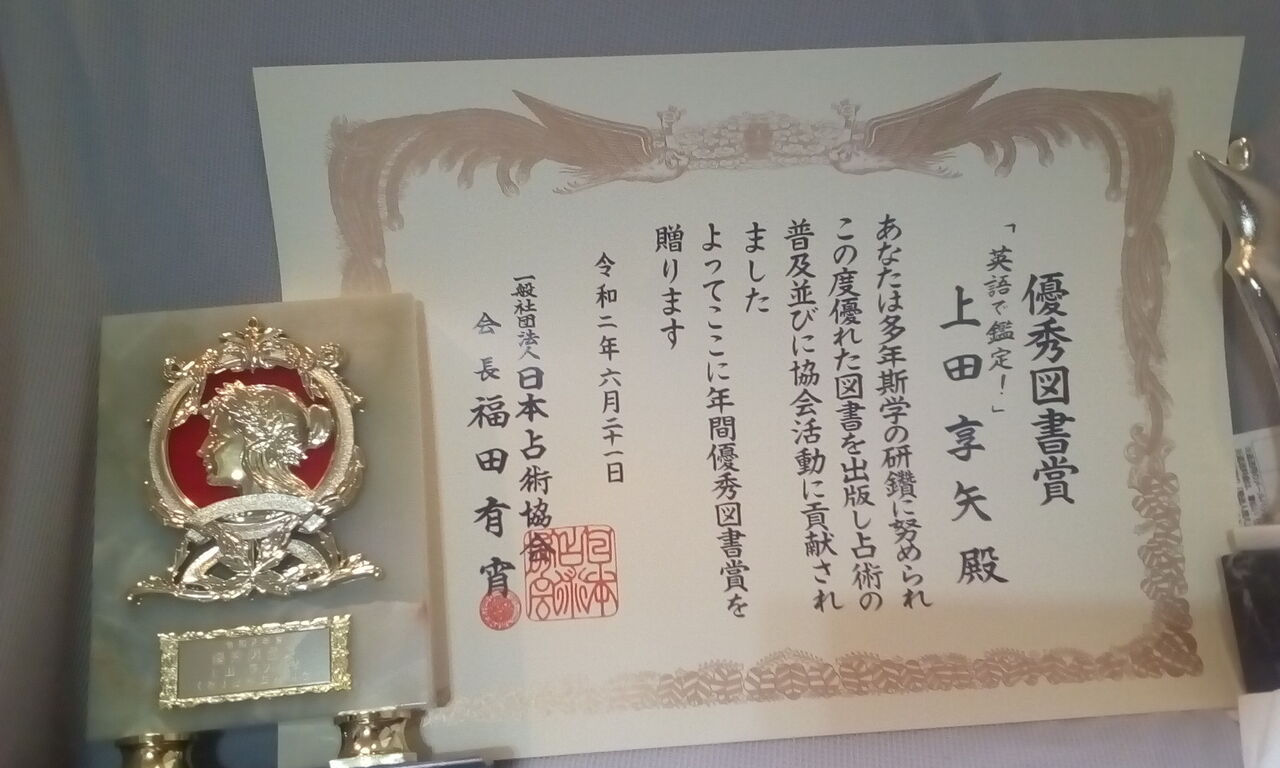 優秀図書賞
「英語で鑑定!」
上田享矢殿
あなたは多年斯学の研鑽に努められ
この度優れた図書を出版し占術の
普及並びに協会活動に貢献され
ました
よってここに年間優秀図書賞を
贈ります
令和二年六月二十一日
一般社団法人日本占術協会
会長福田有宵